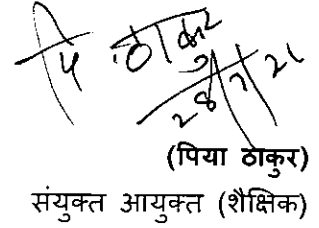 पि ठाकुर
28/7/21
(पिया ठाकुर)
संयुक्त आयुक्त (शैक्षिक)